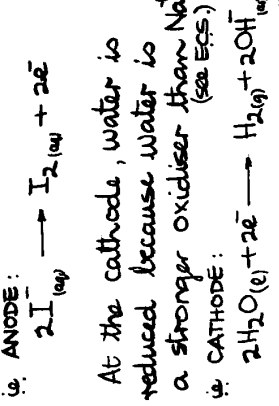 i.e. ANODE:
2I⁻(aq) ⟶ I₂(aq) + 2e⁻
At the cathode, water is
reduced because water is
a stronger oxidiser than Na⁺
(see ECS.)
i.e. CATHODE:
2H₂O(l) + 2e⁻ ⟶ H₂(g) + 2OH⁻(aq)